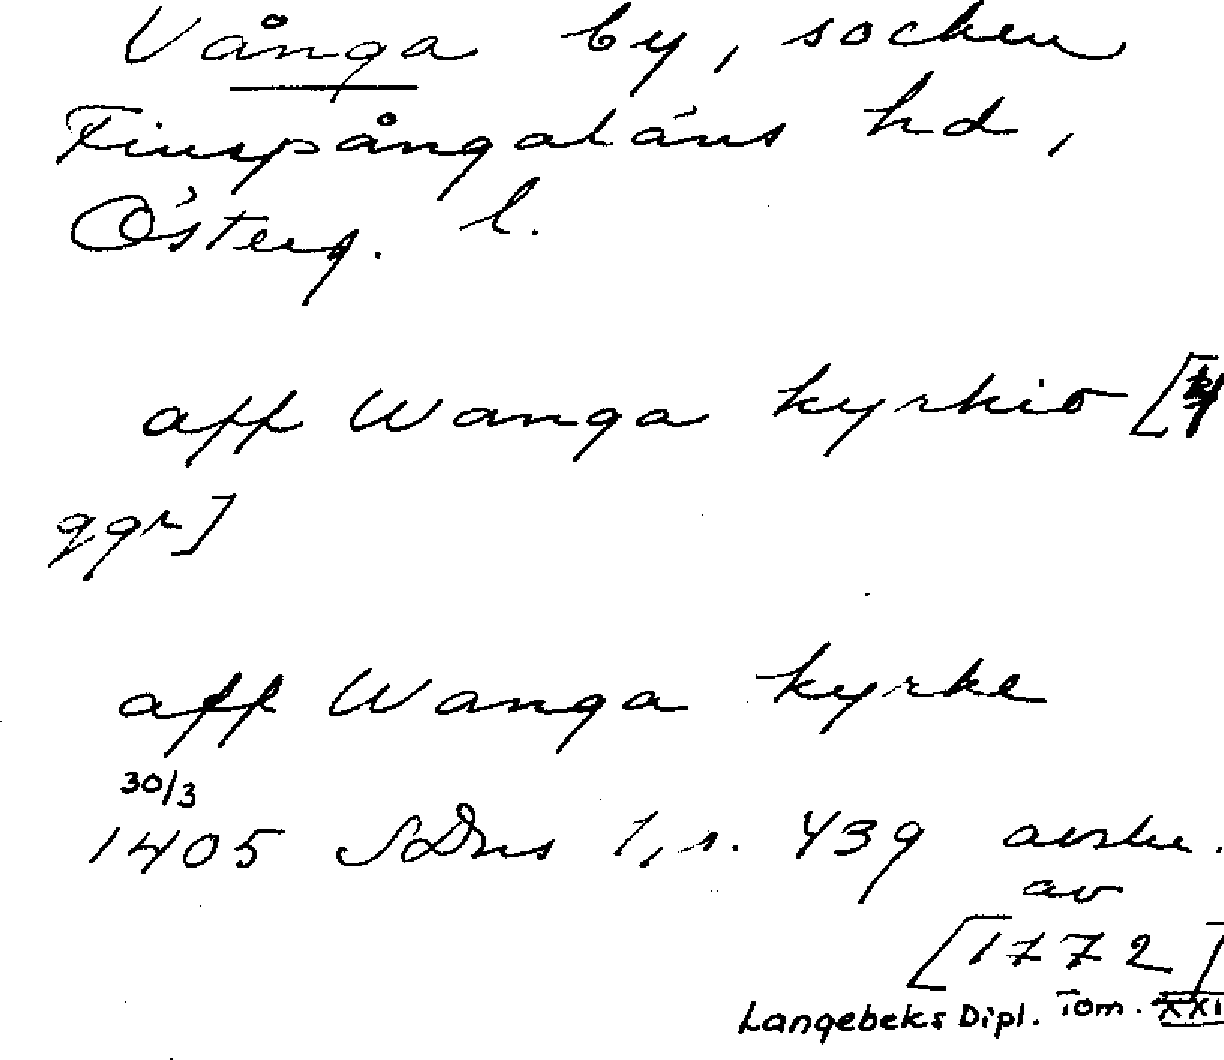 Vånga by, socken
Finspångaläns hd,
Österg. l.
aff Wanga kyrkio [4
ggr]
aff Wanga kyrke
30/3
1405 SDns 1, s. 439 avskr.
av
[1772]
Langebeks Dipl. Tom. XXI